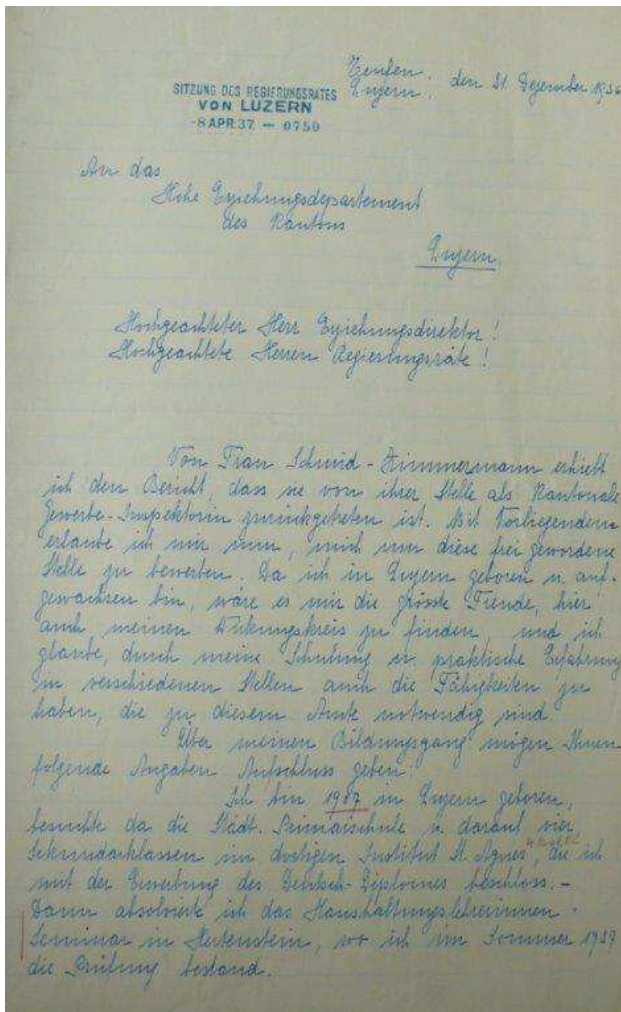 Teufen,
Luzern, den 31. Dezember 1936
SITZUNG DES REGIERUNGSRATES
VON LUZERN
-8 APR. 37 — 0750
An das
Hohe Erziehungsdepartement
des Kantons
Luzern.
Hochgeachteter Herr Erziehungsdirektor!
Hochgeachtete Herren Regierungsräte!
Von Frau Schmid-Zimmermann erhielt
ich den Bericht, dass sie von ihrer Stelle als Kantonale
Gewerbe-Inspektorin zurückgetreten ist. Mit Vorliegendem
erlaube ich mir nun, mich um diese frei gewordene
Stelle zu bewerben. Da ich in Luzern geboren u. auf-
gewachsen bin, wäre es mir die grösste Freude, hier
auch meinen Wirkungskreis zu finden, und ich
glaube, durch meine Schulung u. praktische Erfahrung
in verschiedenen Stellen auch die Fähigkeiten zu
haben, die zu diesem Amte notwendig sind.
Über meinen Bildungsgang mögen Ihnen
folgende Angaben Aufschluss geben:
Ich bin in Luzern geboren,
besuchte da die Städt. Primarschule u. darauf vier
Sekundarklassen im dortigen Institut St. Agnes, die ich
mit der Erwerbung des Deutsch-Diplomes beschloss.-
Dann absolvierte ich das Haushaltungslehrerinnen-
Seminar in Hertenstein, wo ich im Sommer
die Prüfung bestand.